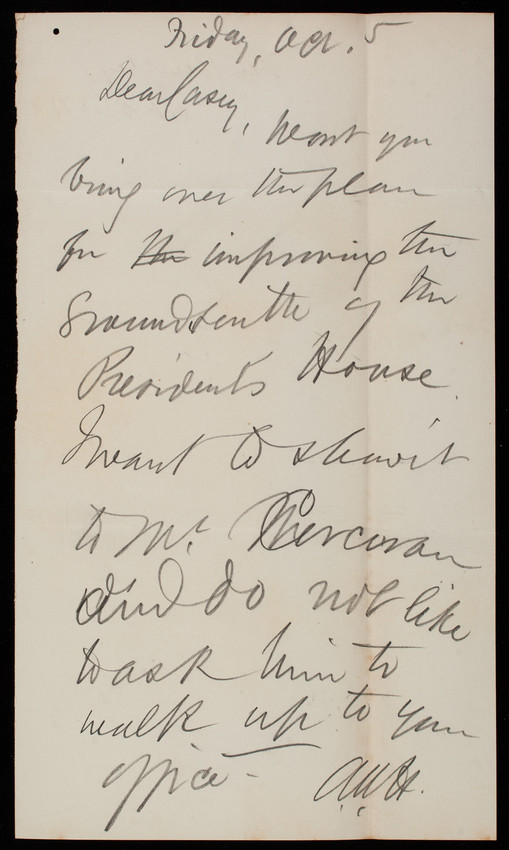 Friday, Oct. 5
Dear Casey, Wont you
bring over the plan
for the improving the
Grounds south of the
Presidents House.
I want to show it
to Mr. Corcoran
and do not like
to ask him to
walk up to your
office -